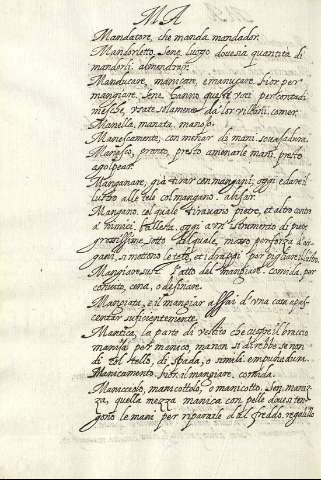 MA
Mandatore, che manda mandador.
Mandorleto. Sene. luogo dove sia quantita di
mandorli. almendral.
Manducare, manicare, e manucare. bior per
mangiare. Sene. hanno queste voci per contadi
nesche, usate solamente da lor villani, comer.
Manella, manata, manojo.
Manescamente, con menar di mani
Manesco, pronto, presto amenar le mani, presto
agolpear.
Manganare, già tirar con mangani, oggi e dare il
lustro alle tele col mangano.
Mangano. col quale tiravano pietre, et altro contro
a nimici. ballesta. oggi a un strumento di pietre
grossissime, sotto del quale, mosso per forza d'ar
gani, si mettono le tele, et i drappi per pigliare il lustro.
Mangiare sust. l'atto del mangiare. comida, per
convito, cena, o desinare.
Mangiata, e il mangiar assai d'una cosa a pas
centar suficientemente.
Manica, la parte di vestito che cuopre il braccio
manija per manico, ma non si direbbe se non
di coltello, di spada, e simili. empuñadura.
Manicamento. bior. il mangiare, comida.
Maniccione, manicottolo, o manicotto. Sen. maniz
za, quella mezza manica con pelle dove si ten
gono le mani per ripararle dal freddo. regalillo